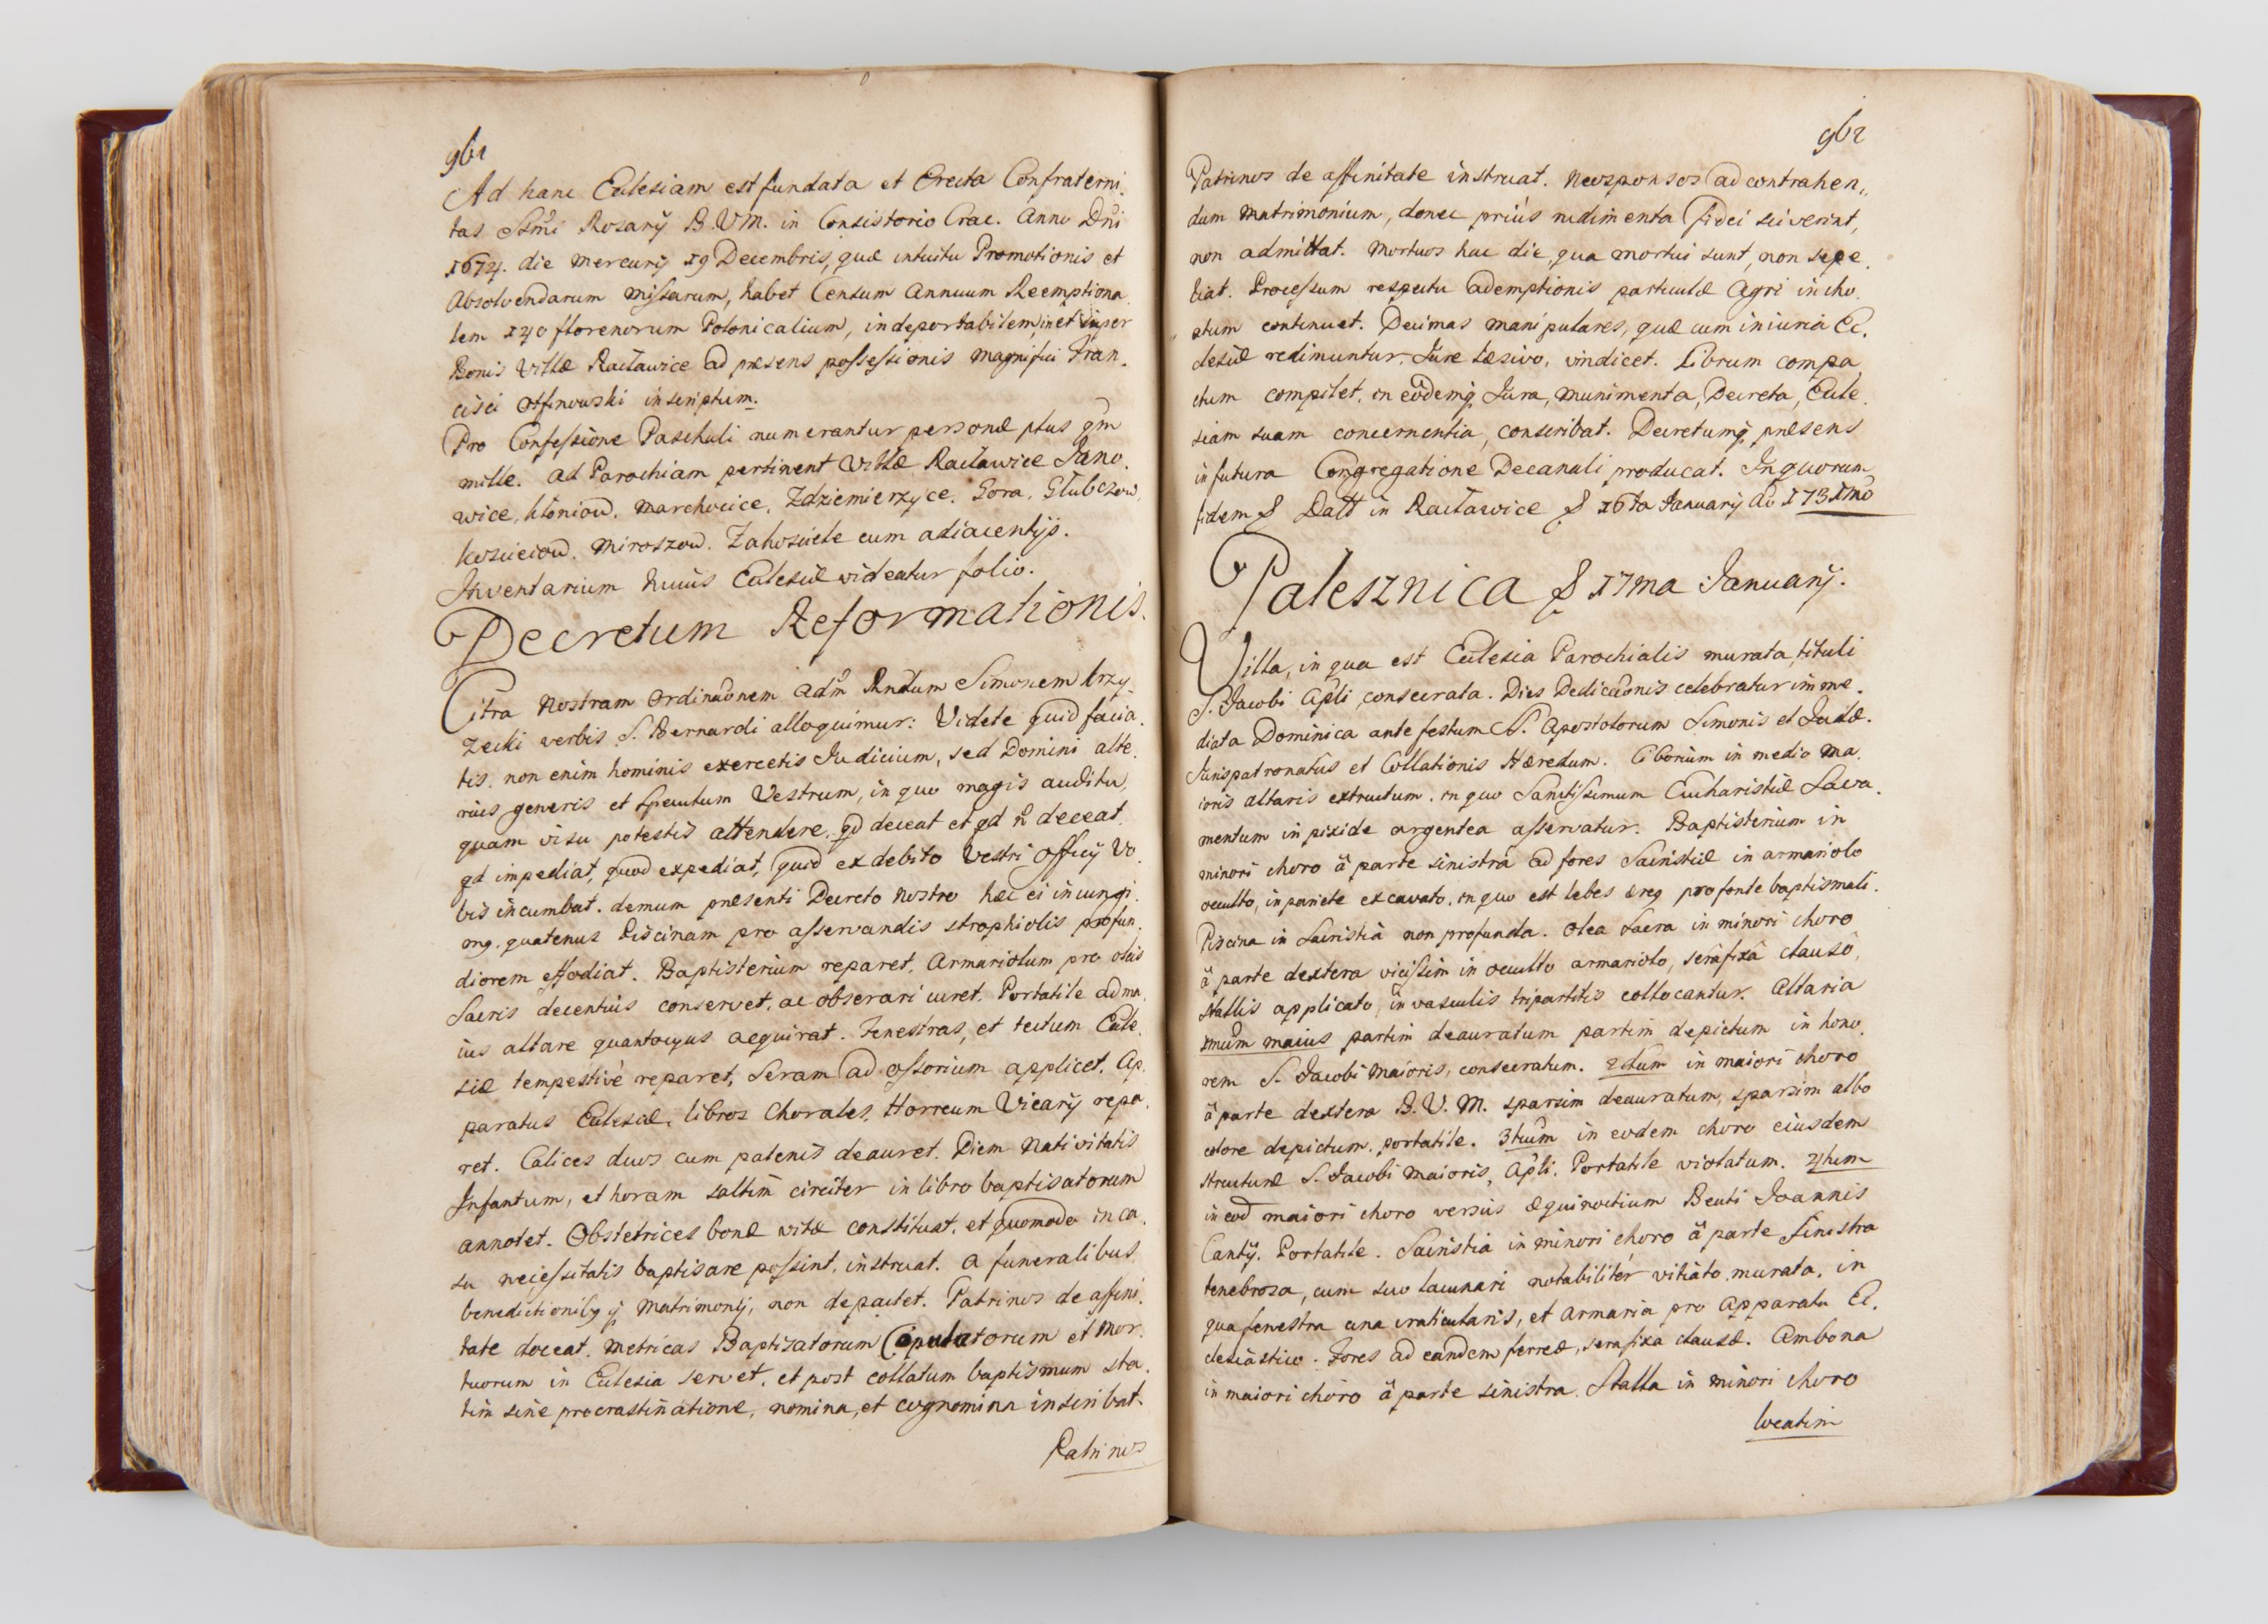 961
Ad hanc Ecclesiam est fundata et Erecta Confraterni,
tas Ssmi Rosarÿ B.V.M. in Consistorio Crac. Anno Dni
1674. die Mercurÿ 19 Decembris, quæ intuitu Promotionis et
Absolvendarum Missarum, habet Censum Annuum Reemptiona,
lem 140 florenorum Polonicalium, indeportabilem, in et super
Bonis Villæ Racławice ad præsens possessionis Magnifici Fran,
cisci Otfinowski inscriptum.
Pro Confessione Paschali numerantur personæ plus qm
mille. Ad Parochiam pertinent Villæ Racławice Jano,
wice, Kłoniow. Marchocice, Zdziemierzyce. Gora. Głubczow,
Koscieiow. Miroszow. Zakosciele cum adiacentÿs.
Inventarium huius Ecclesiæ videatur folio.
Decretum Reformationis.
Citra Nostram Ordinãonem Adm Rndum Simonem Krzy,
zecki verbis S. Bernardi alloquimur: Videte quid facia,
tis. non enim hominis exercetis Judicium, sed Domini alte,
rius generis et Speculum Vestrum, in quo magis auditu,
quam visu potestis attendere, qd deceat et qd ñ deceat.
qd impediat, quod expediat, quid ex debito Vestri Officÿ Vo,
bis incumbat. demum præsenti Decreto Nostro hæc ei iniungi,
mq. quatenus Piscinam pro asservandis strophiolis profun,
diorem effodiat. Baptisterium reparet, Armariolum pro oleis
Sacris decentius conservet, ac obserari curet. Portatile ad ma,
ius altare quantocyus acquirat. Fenestras, et tectum Eccle,
siæ tempestivè reparet, Seram ad ossorium applicet. Ap,
paratus Ecclesiæ, libros Chorales, Horreum Vicarÿ repa,
ret. Calices duos cum patenis deauret. Diem Nativitatis
Infantum, et horam saltim circiter in libro baptisatorum
annotet. Obstetrices bonæ vitæ constituat, et quomodo in ca,
su necessitatis baptisare possint, instruat. A funeralibus
benedictionibq q Matrimonÿ, non depactet. Patrinos de affini,
tate doceat. Metricas Baptizatorum Copulatorum et Mor,
tuorum in Ecclesia servet, et post collatum baptismum sta,
tim sine procrastinatione, nomina, et cognomina inscribat.
Patrinos
962
Patrinos de affinitate instruat. Neosponsos ad contrahen,,
dum Matrimonium, donec priùs rudimenta fidei sciverint,
non admittat. Mortuos hac die, qua mortui sunt, non sepe,
liat. Processum respectu ademptionis particulæ Agri incho,
atum continuet. Decimas manipulares, quæ cum iniuria Ec,
clesiæ redimuntur, Jure læsivo, vindicet. Librum compa,
ctum compilet, in eodemq Jura, Munimenta, Decreta, Eccle,
siam suam concernentia, conscribat. Decretumq præsens
in futura Congregatione Decanali producat. In quorum
fidem & Datt in Racławice & 16ta Januarÿ Ao 1731mo
Palesznica & 17ma Januarÿ.
Villa, in qua est Ecclesia Parochialis murata, tituli
S. Jacobi Apli consecrata. Dies Dedicãonis celebratur imme,
diata Dominica ante festum SS. Apostolorum Simonis et Judæ.
Jurispatronatus et Collationis Hæredum. Ciborium in medio Ma,
ioris altaris extructum. in quo Sanctissimum Eucharistiæ Sacra,
mentum in pixide argentea asservatur. Baptisterium in
minori choro â parte sinistra ad fores Sacristiæ in armariolo
occulto, in pariete excavato, in quo est lebes æreq pro fonte baptismali.
Piscina in Sacristia non profunda. Olea Sacra in minori choro
â parte dextera vicissim in occulto armariolo, serâ fixâ clauso,
stallis applicato, in vasculis tripartitis collocantur. Altaria
1mum maius partim deauratum partim depictum in hono,
rem S. Jacobi Maioris, consecratum. 2dum in maiori choro
â parte dextera B.V.M. sparsim deauratum, sparsim albo
colore depictum, portatile. 3tium in eodem choro eiusdem
structuræ S. Jacobi Maioris, Apli. Portatile violatum. 4tum
in eod maiori choro versus æquinoctium Beati Joannis
Cantÿ. Portatile. Sacristia in minori choro â parte Sinistra
tenebrosa, cum suo lacunari notabilitèr vitiato, murata, in
qua fenestra una craticularis, et armaria pro Apparatu Ec,
clesiastico. Fores ad eandem ferreæ, sera fixa clausæ. Ambona
in maiori choro â parte sinistra. Stalla in minori choro
locatim